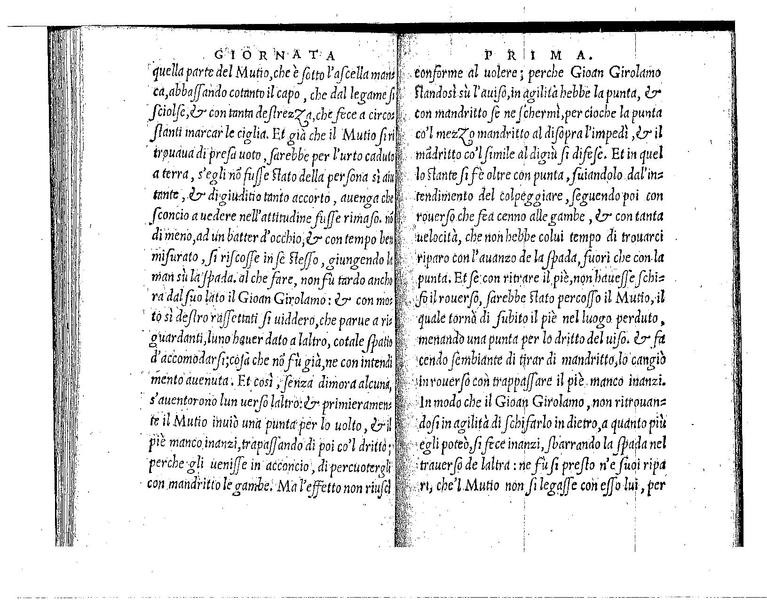 GIORNATA
quella parte del Mutio, che è sotto l'ascella man
ca, abbassando cotanto il capo, che dal legame si
sciolse, & con tanta destrezza, che fece a circos
stanti marcar le ciglia. Et già che il Mutio si ri
trouaua di presa uoto, sarebbe per l'urto caduto
a terra, s'egli nõ fusse stato della persona sì aiu
tante, & di giuditio tanto accorto, auenga che
sconcio a uedere nell'attitudine fusse rimaso. nõ
di meno, ad un batter d'occhio, & con tempo ben
misurato, si riscosse in se stesso, giungendo le
man sù la spada. al che fare, non fù tardo ancho
ra dal suo lato il Gioan Girolamo: & con mol
to sì destro rassettati si uiddero, che parue a ri=
guardanti, luno hauer dato a laltro, cotale spatio
d'accomodarsi; cosa che nõ fù già, ne con intendi
mento auenuta. Et così, senza dimora alcuna,
s'auentorono lun uerso laltro: & primieramen=
te il Mutio inuiò una punta per lo uolto, & il
piè manco inanzi, trapassando di poi co'l dritto;
perche gli uenisse in acconcio, di percuotergli
con mandritto le gambe. Ma l'effetto non riuscì
PRIMA.
conforme al uolere; perche Gioan Girolamo
standosi sù l'auiso, in agilità hebbe la punta, &
con mandritto se ne schermì, per cioche la punta
co'l mezzo mandritto al disopra l'impedì, & il
mãdritto co'l simile al digiù si difese. Et in quel
lo stante si fè oltre con punta, suiandolo dal'in=
tendimento del colpeggiare, seguendo poi con
rouerso che fea cenno alle gambe, & con tanta
uelocità, che non hebbe colui tempo di trouarci
riparo con l'auanzo de la spada, fuori che con la
punta. Et se con ritrare il piè, non hauesse schi=
fo il rouerso, sarebbe stato percosso il Mutio, il
quale tornò di subito il piè nel luogo perduto,
menando una punta per lo dritto del uiso. & fa
cendo sembiante di tirar di mandritto, lo cangiò
in rouerso con trappassare il piè manco inanzi.
In modo che il Gioan Girolamo, non ritrouan=
dosi in agilità di schifarlo in dietro, a quanto più
egli poteò, si fece inanzi, sbarrando la spada nel
trauerso de laltra: ne fù si presto n'e suoi ripa
ri, che'l Mutio non si legasse con esso lui, per